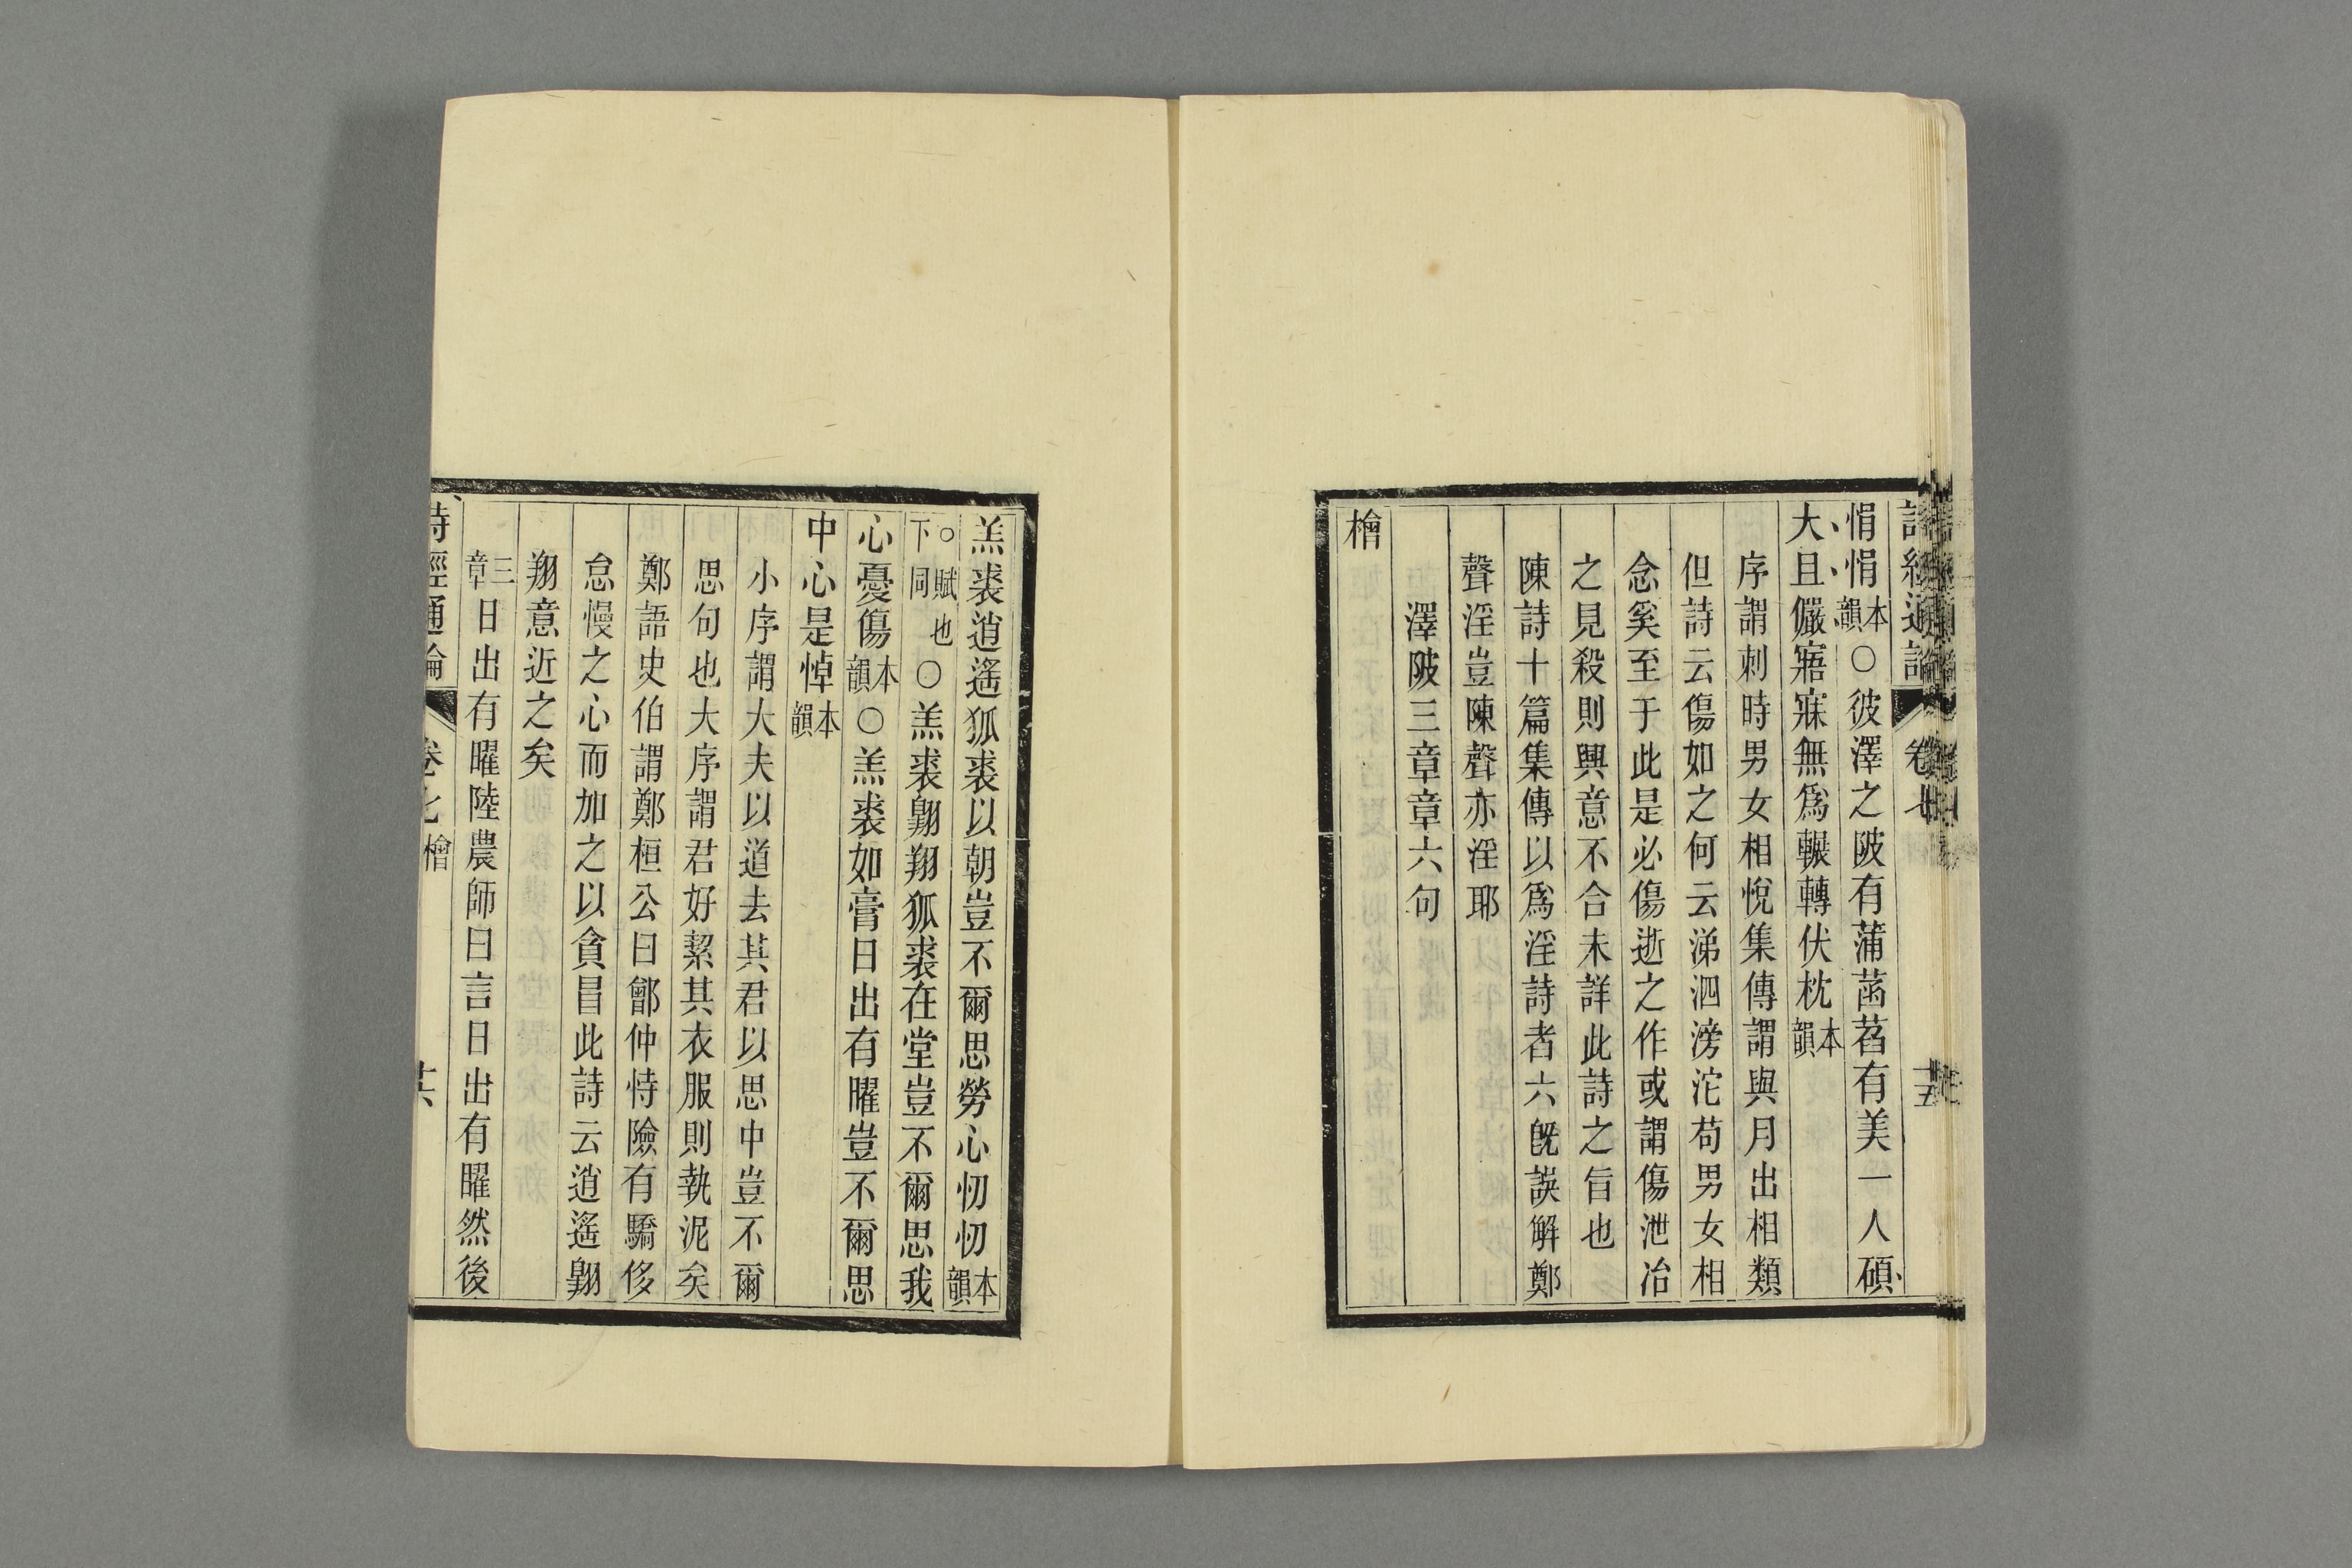 詩經通論 卷七 十五
悁悁本韻○彼澤之陂有蒲菡萏有美一人碩
大且儼寤寐無爲輾轉伏枕本韻
序謂刺時男女相悅集傳謂與月出相類
但詩云傷如之何云涕泗滂沱苟男女相
念奚至于此是必傷逝之作或謂傷泄冶
之見殺則興意不合未詳此詩之旨也
陳詩十篇集傳以爲淫詩者六旣誤解鄭
聲淫豈陳聲亦淫耶
澤陂三章章六句
檜
羔裘逍遙狐裘以朝豈不爾思勞心忉忉本韻
○賦也下同○羔裘翺翔狐裘在堂豈不爾思我
心憂傷本韻○羔裘如膏日出有曜豈不爾思
中心是悼本韻
小序謂大夫以道去其君以思中豈不爾
思句也大序謂君好絜其衣服則執泥矣
鄭語史伯謂鄭桓公曰鄶仲恃險有驕侈
怠慢之心而加之以貪冒此詩云逍遙翺
翔意近之矣
三章日出有曜陸農師曰言日出有曜然後
詩經通論 卷七 檜 十六